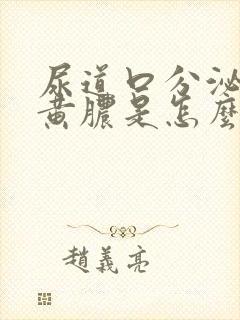 尿道口分泌
黃膿是怎麼
趙義亮